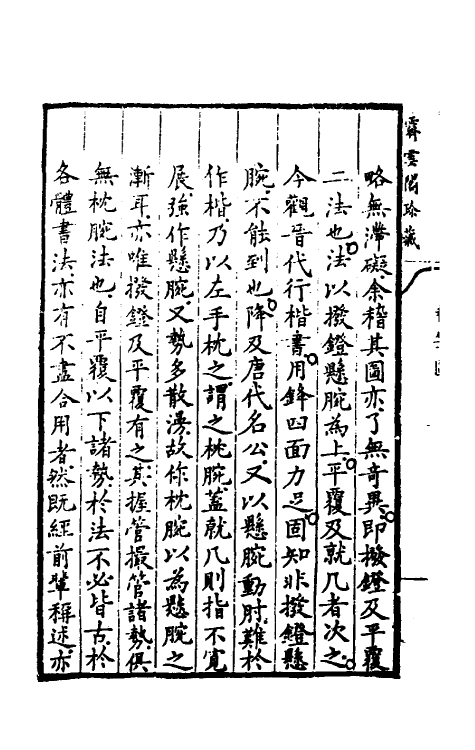 略無滯礙余稽其圖亦了無奇異即撥鐙及平覆
二法也法以撥鐙懸腕為上平覆及就几者次之
今觀晉代行楷書用鋒四面力足固知非撥鐙懸
腕不能到也降及唐代名公又以懸腕動肘難於
作楷乃以左手枕之謂之枕腕蓋就几則指不寬
展強作懸腕又勢多散漫故作枕腕以為懸腕之
漸耳亦唯撥鐙及平覆有之其握管撮管諸勢俱
無枕腕法也自平覆以下諸勢於法不必皆古於
各體書法亦有不盡合用者然既經前輩稱述亦
霽雲閣珍藏